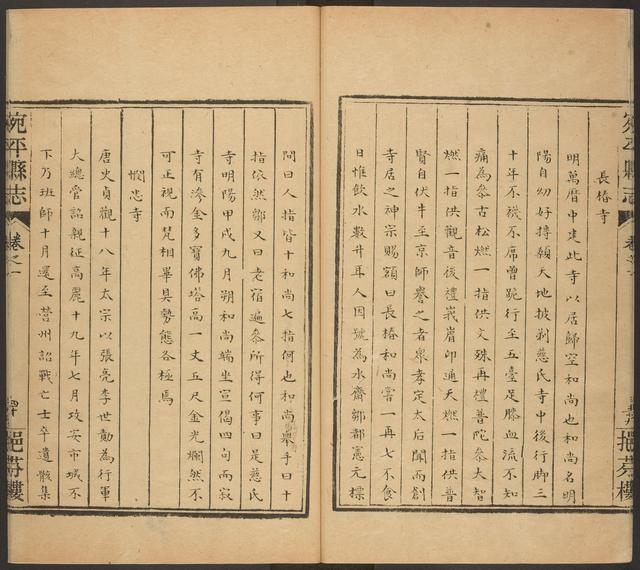 長椿寺
明萬曆中建此寺以居歸空和尚也和尚名明
陽自幼好摶願天地披剃慈氏寺中後行脚三
十年不襪不席曽跪行至五臺足膝血流不知
痛為叅古松燃一指供文殊再禮普陀叅大智
燃一指供觀音後禮峩眉卬通天燃一指供普
賢自伏牛至京師譽之者衆孝定太后聞而創
寺居之神宗賜額曰長椿和尚嘗一再七不食
日惟飲水數升耳人因號為水齋鄒都憲元標
問曰人指皆十和尚七指何也和尚舉手曰十
指依然鄒又曰老宿遍叅所得何事曰是慈氏
寺明陽甲戌九月朔和尚端坐宣偈四句而寂
寺有滲金多寶佛塔高一丈五尺金光爛然不
可正視而梵相畢具勢態各極焉
憫忠寺
唐史貞觀十八年太宗以張亮李世勣為行軍
大總管詔親征高麗十九年七月攻安市城不
下乃班師十月還至營州詔戰亡士卒遺骸集
宛平縣志
卷之一
挹芬樓
宛平縣志
挹芬樓